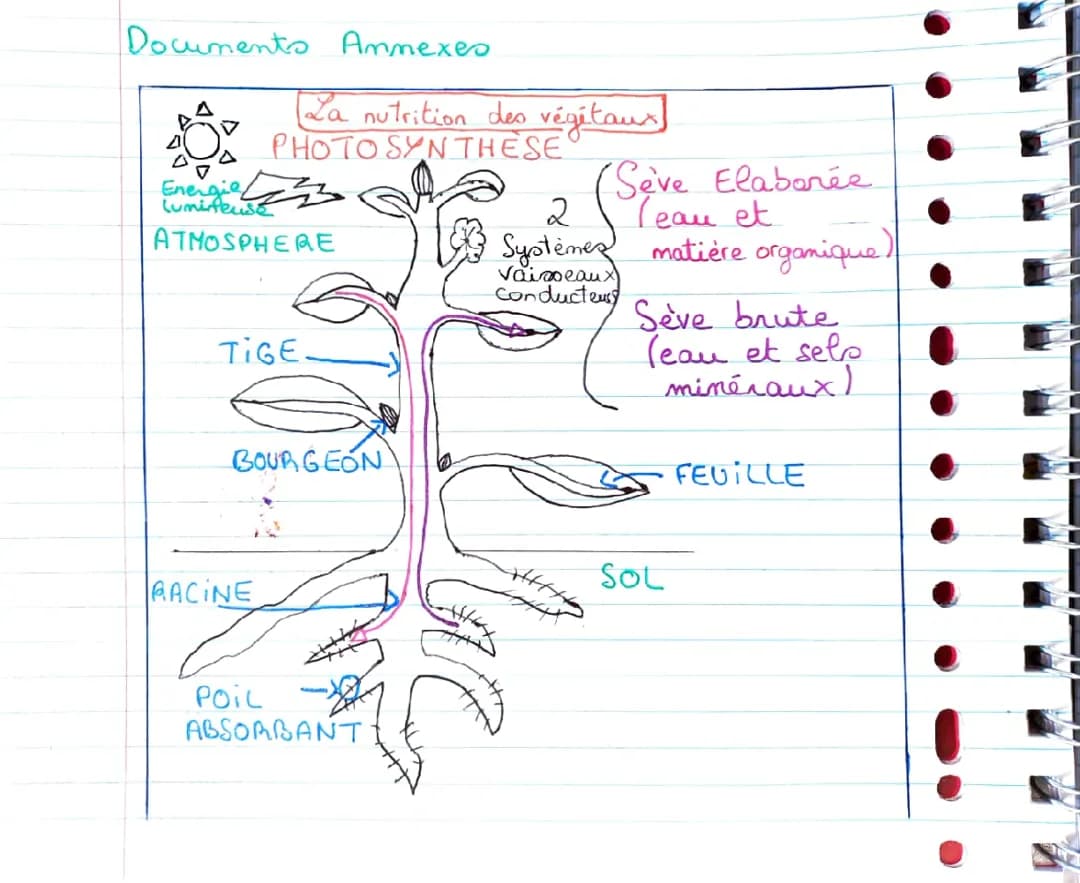 Documents Annexes
La nutrition des végétaux
PHOTOSYNTHÈSE
Energie
lumineuse
ATMOSPHERE
2
Systèmes
vaisseaux
conducteurs
Sève Elaborée
(eau et
matière organique)
Sève brute
(eau et sels
minéraux)
TIGE
BOURGEON
FEUILLE
SOL
RACINE
POIL
ABSORBANT